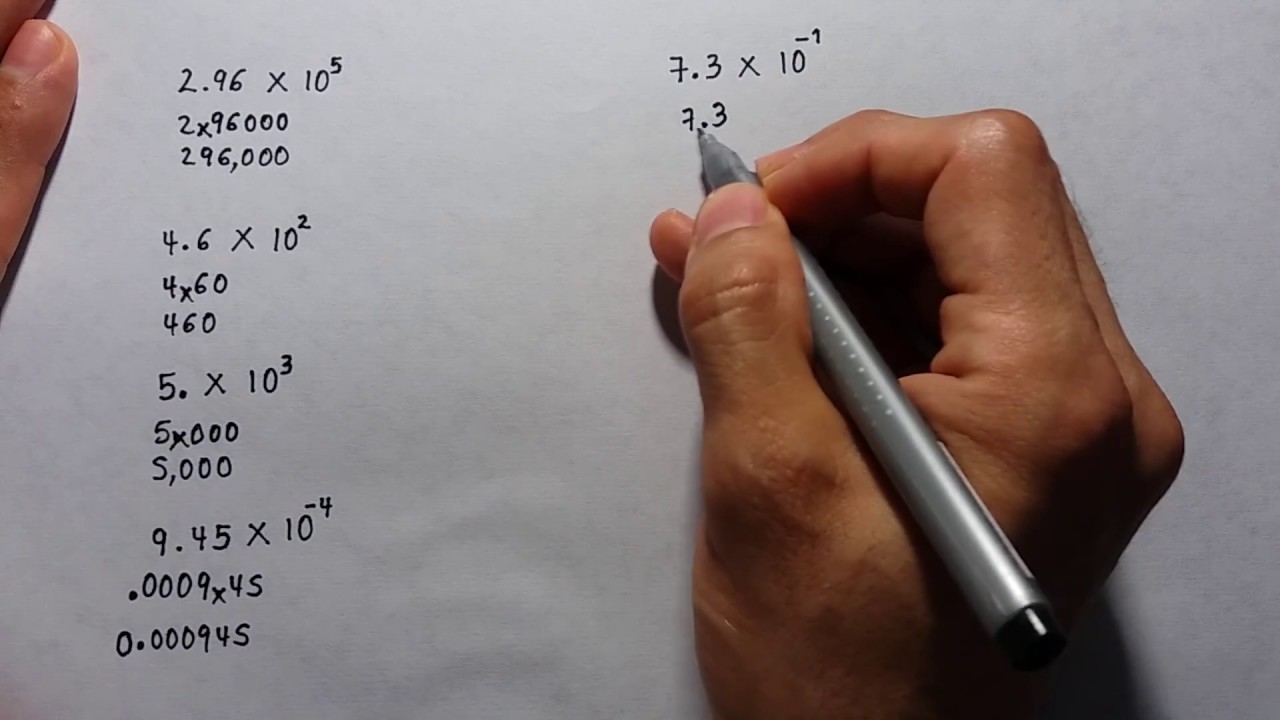 2.96 × 10⁵
2×96000
296,000
4.6 × 10²
4×60
460
5. × 10³
5×000
5,000
9.45 × 10⁻⁴
.0009×45
0.000945
7.3 × 10⁻¹
7.3